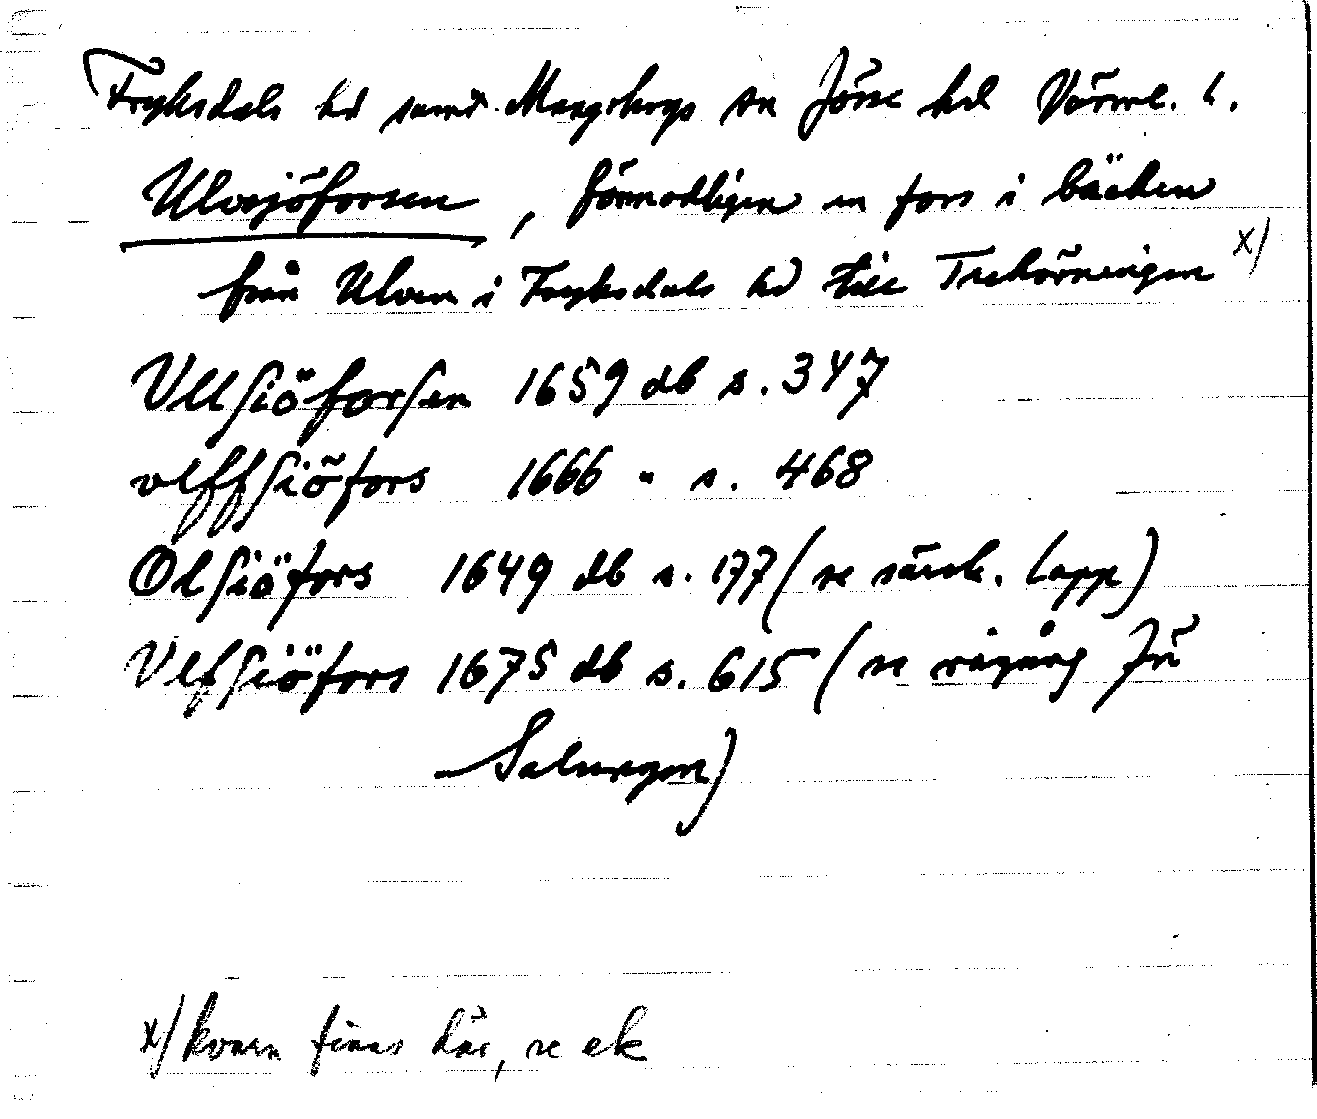 Fryksdals hd samt Mangskogs sn Jösse hd Värml. l.
Ulvsjöforsen, förmodligen en fors i bäcken
från Ulven i Fryksdals hd till Treehörningen x)
Vllsiöforsen 1659 db s. 347
vlffsiöfors 1666 " s. 468
Olsiöfors 1649 db s. 177 (se särsk. lapp)
Vlfsiöfors 1675 db s. 615 (se rågång
Salungen)
x) kvarn finns där, se ek